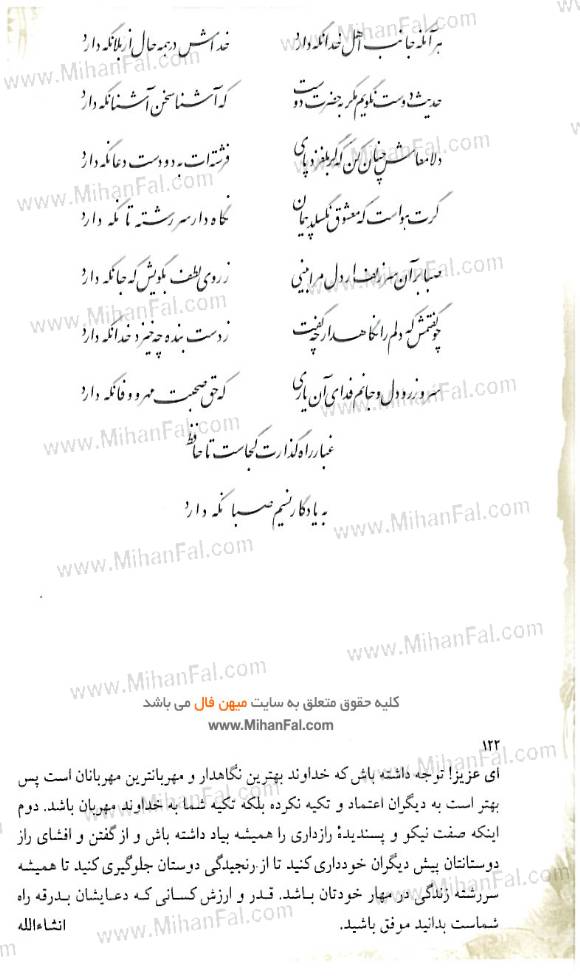 هر آنکه جانب اهل خدا نگه دارد خداش در همه حال از بلا نگه دارد
حدیث دوست نگویم مگر به حضرت دوست که آشنا سخن آشنا نگه دارد
دلا معاش چنان کن که گر بلغزد پای فرشته‌ات به دو دست دعا نگه دارد
گرت هواست که معشوق نگسلد پیمان نگاه دار سر رشته تا نگه دارد
صبا بر آن سر زلف ار دل مرا بینی ز روی لطف بگویش که جا نگه دارد
چو گفتمش که دلم را نگاه دار چه گفت ز دست بنده چه خیزد خدا نگه دارد
سر و زر و دل و جانم فدای آن یاری که حق صحبت مهر و وفا نگه دارد
غبار راه گذارت کجاست تا حافظ
به یادگار نسیم صبا نگه دارد
کلیه حقوق متعلق به سایت میهن فال می باشد
www.MihanFal.com
۱۲۲
ای عزیز! توجه داشته باش که خداوند بهترین نگاهدار و مهربانترین مهربانان است پس
بهتر است به دیگران اعتماد و تکیه نکرده بلکه تکیه شما به خداوند مهربان باشد. دوم
اینکه صفت نیکو و پسندیدهٔ رازداری را همیشه بیاد داشته باش و از گفتن و افشای راز
دوستانتان پیش دیگران خودداری کنید تا از رنجیدگی دوستان جلوگیری کنید تا همیشه
سررشته زندگی در مهار خودتان باشد. قدر و ارزش کسانی که دعایشان بدرقه راه
شماست بدانید موفق باشید. انشاءالله